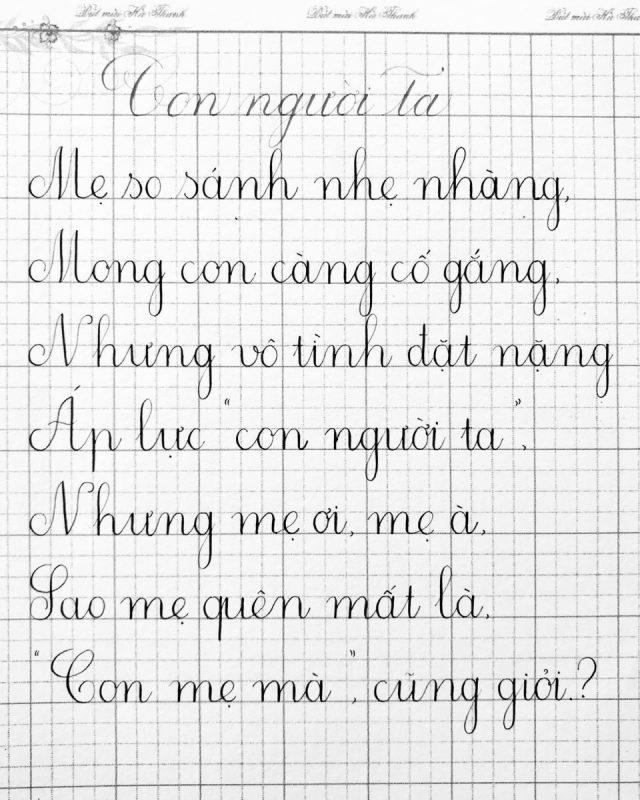 Bút mài Hà Thanh Bút mài Hà Thanh Bút mài Hà Thanh
Con người ta
Mẹ so sánh nhẹ nhàng,
Mong con càng cố gắng,
Nhưng vô tình đặt nặng
Áp lực "con người ta",
Nhưng mẹ ơi, mẹ à,
Sao mẹ quên mất là,
"Con mẹ mà", cũng giỏi.?